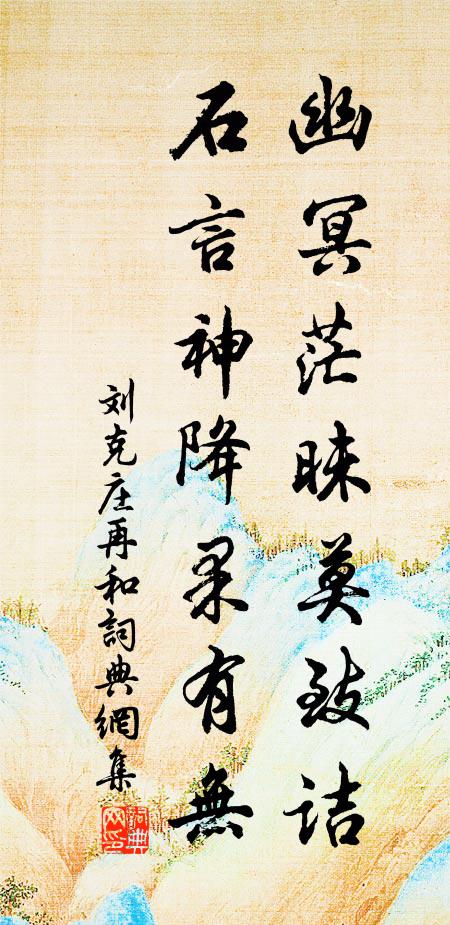 幽冥茫昧莫致诘
石言神降果有無
刘克庄再和詞典網集
詞典网印